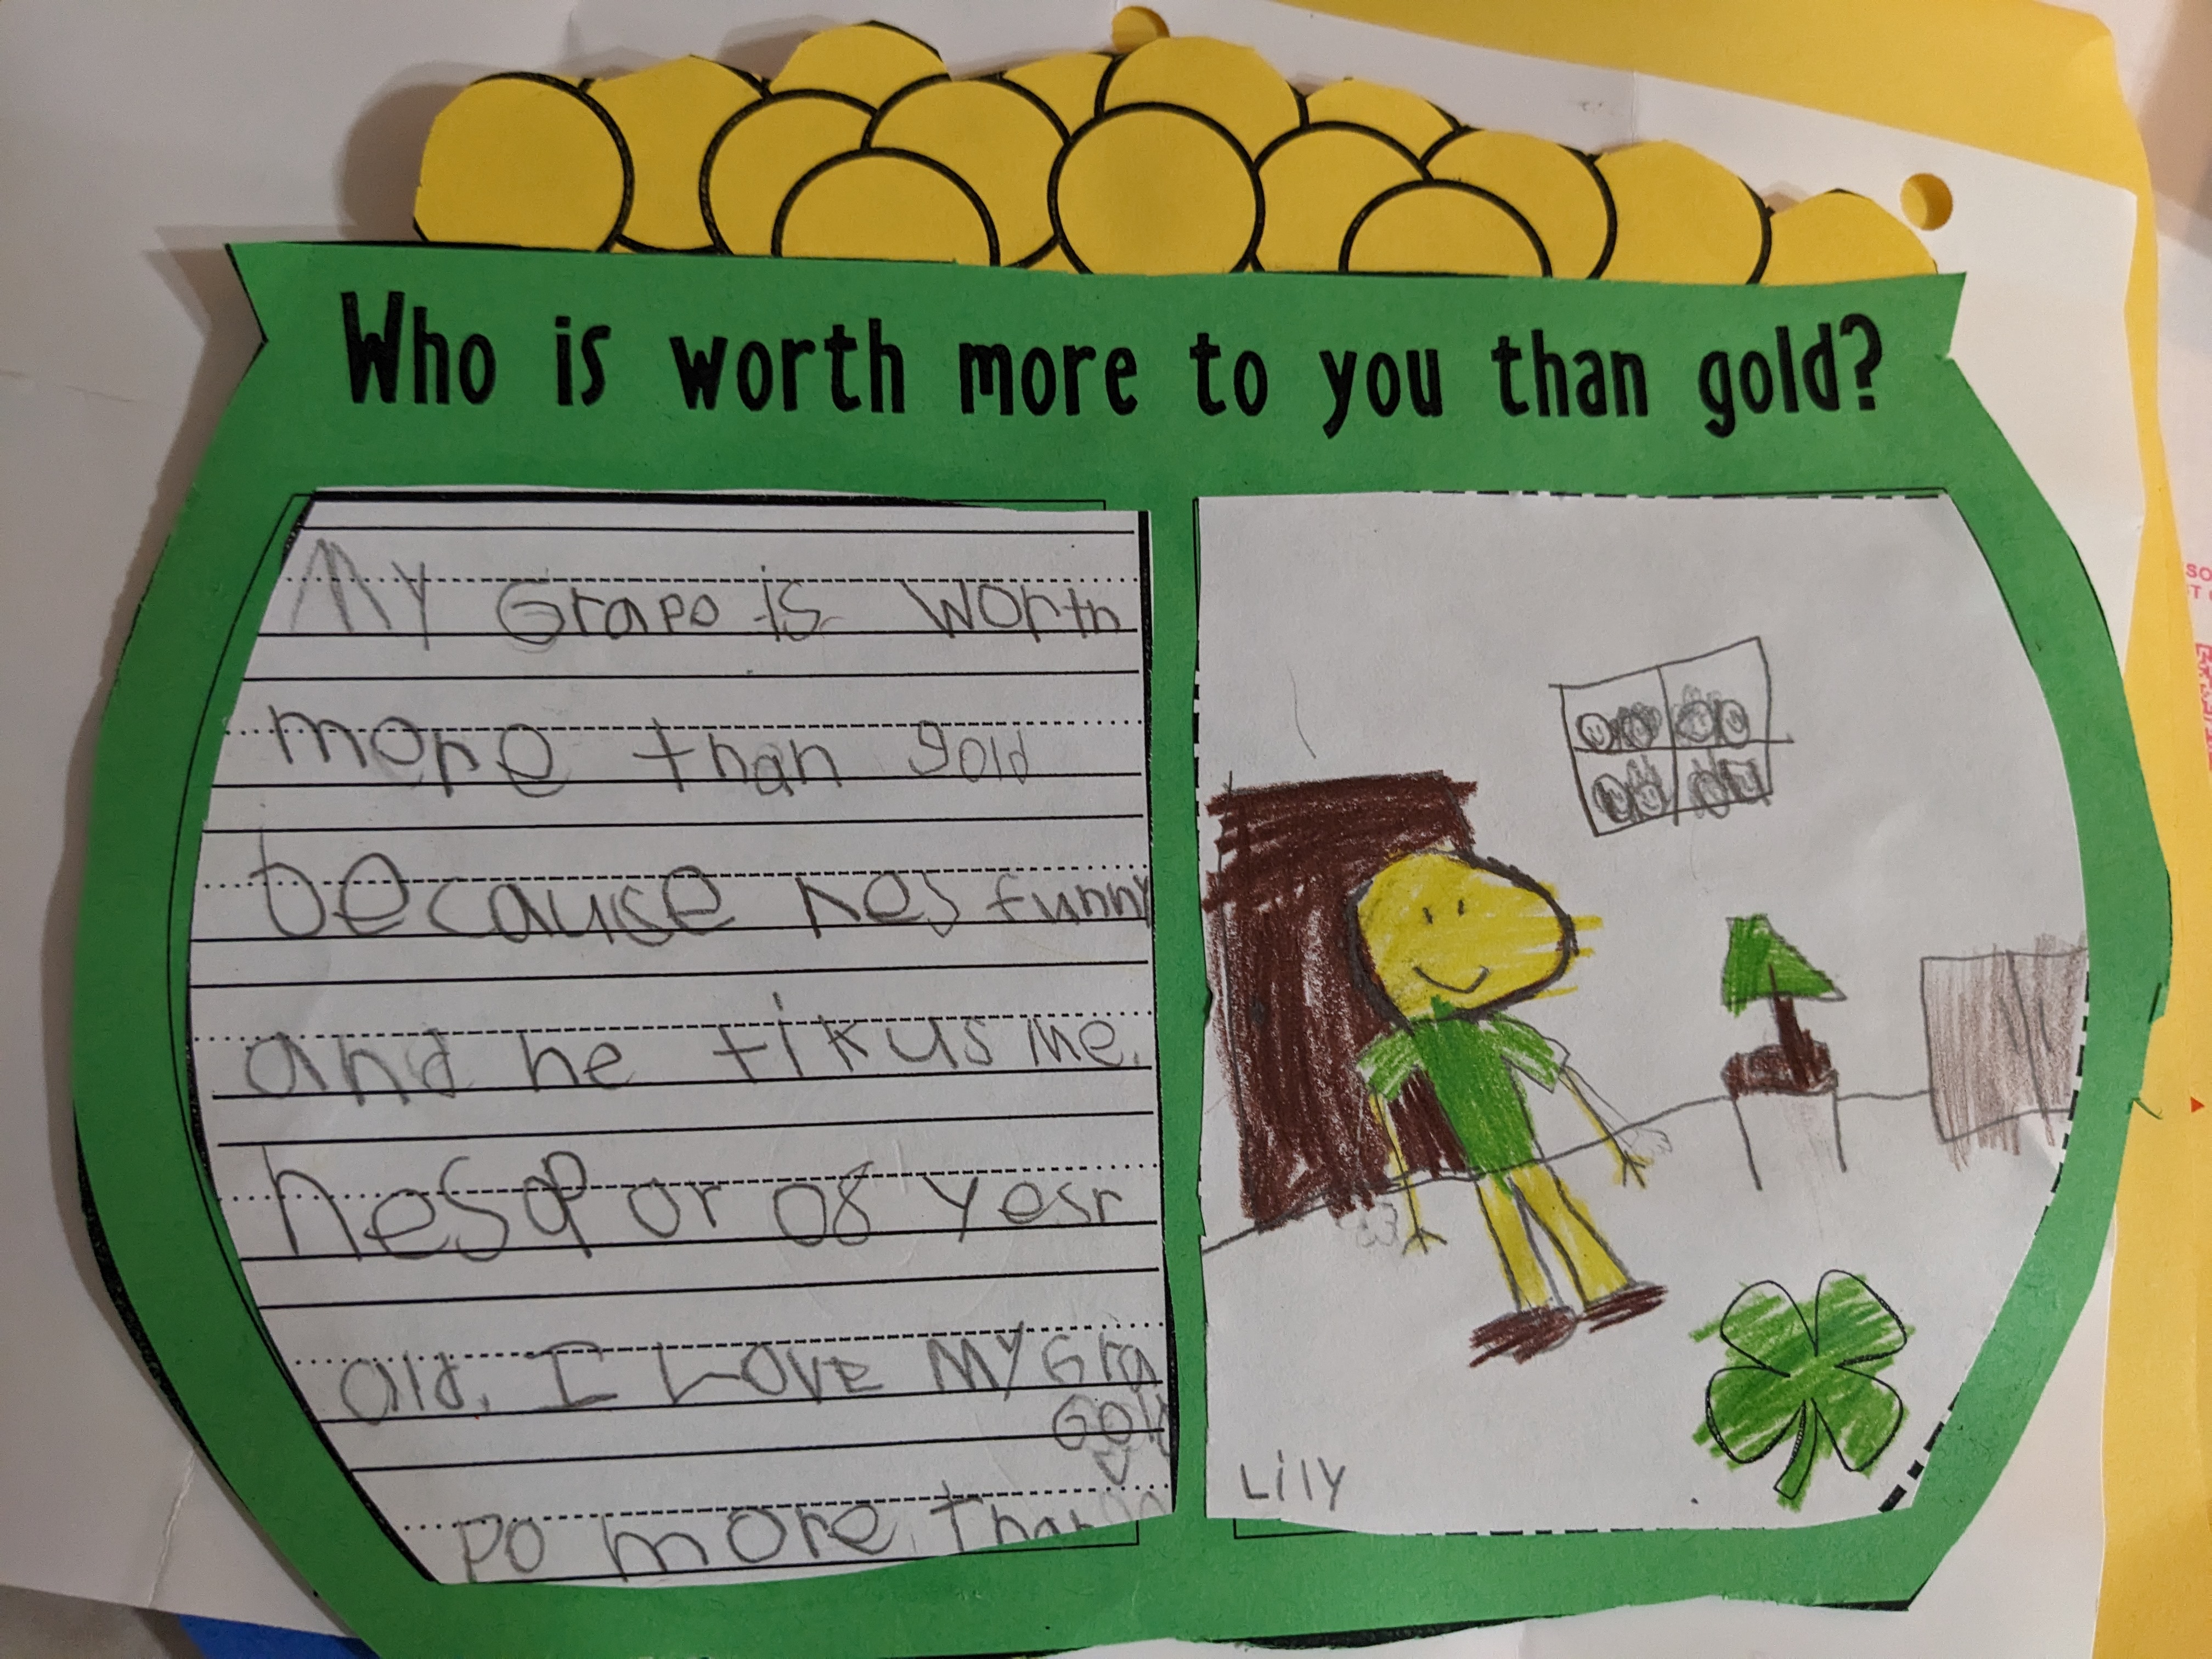 Who is worth more to you than gold?
My Grapo is worth
more than gold
because hes funny
and he tikus me.
hes 9 or 08 yesr
old. I LOVE MY Gra
Gold
po more than
Lily